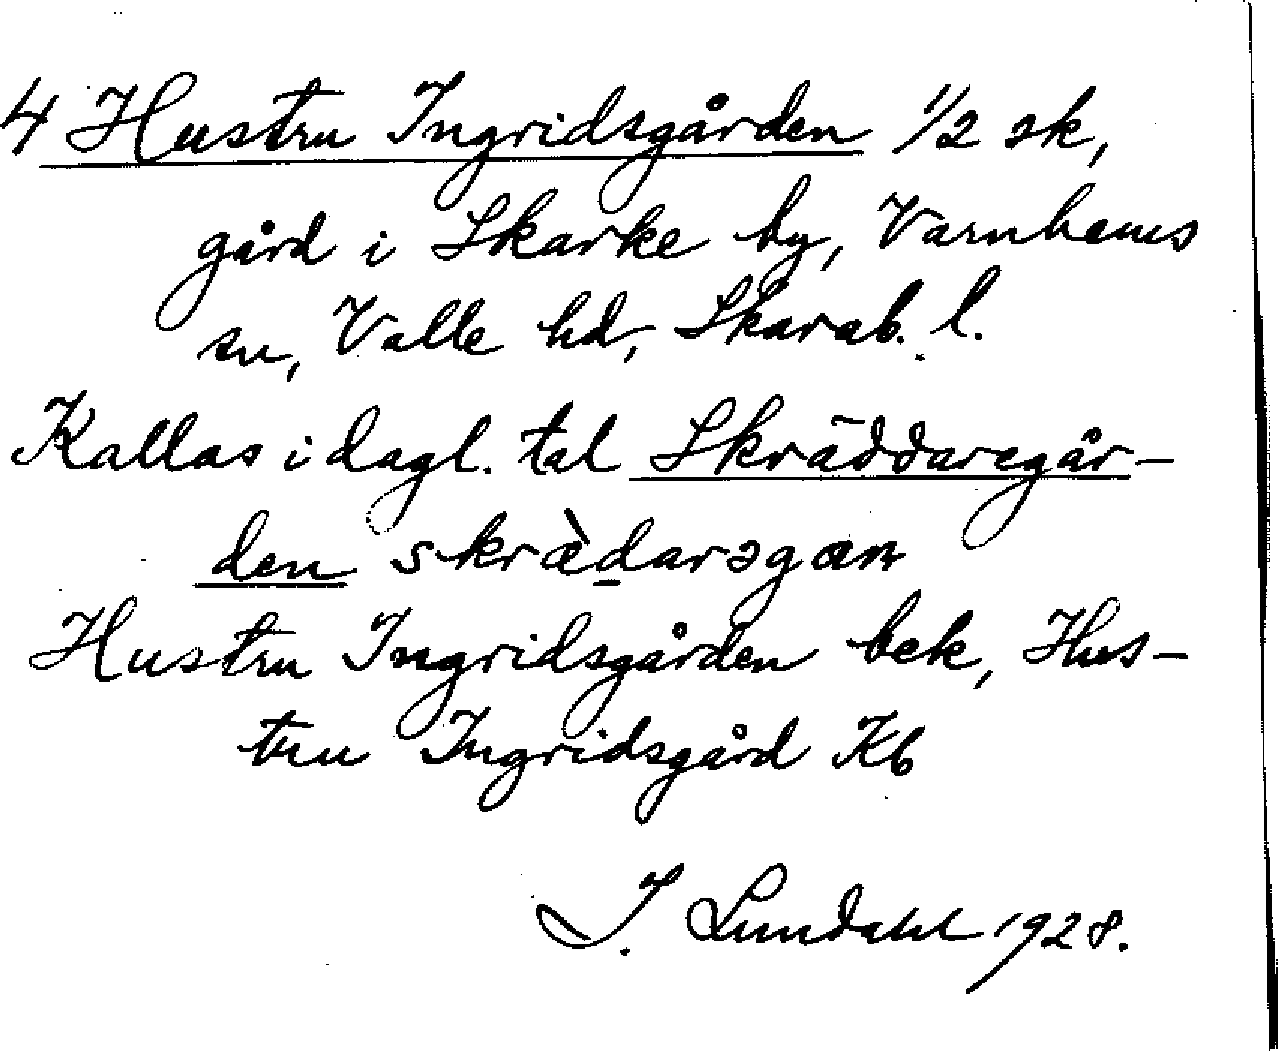 4 Hustru Ingridsgården 1/2 sk,
gård i Skarke by, Varnhems
sn, Valle hd, Skarab. l.
Kallas i dagl. tal Skräddaregår-
den skrædarəgɑn
Hustru Ingridsgården bek, Hus-
tru Ingridsgård Kb
I. Lundahl 1928.